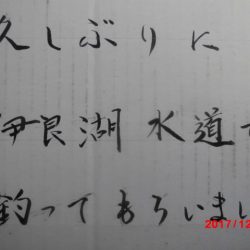 久しぶりに
伊良湖水道で
釣ってもらいまし
2017/12